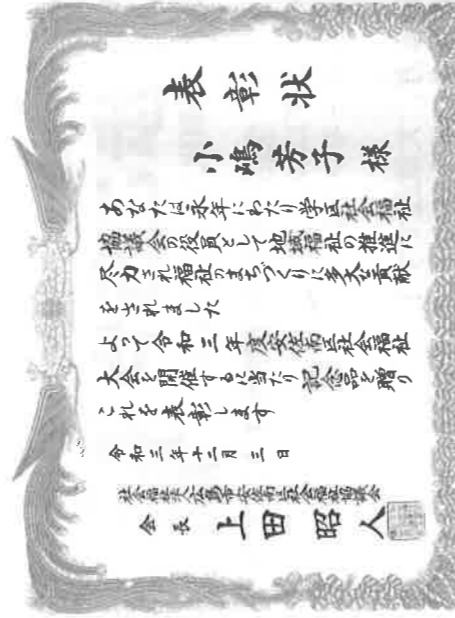 表彰状
小嶋芳子様
あなたは永年にわたり学区社会福祉
協議会の役員として地域福祉の推進に
尽力され福祉のまちづくりに多大な貢献
をされました
よって令和三年度安佐南区社会福祉
大会を開催するに当たり記念品を贈り
これを表彰します
令和三年十二月三日
社会福祉法人広島市安佐南区社会福祉協議会
会長 上田昭人